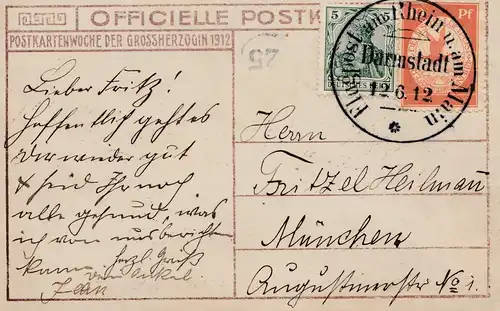 OFFICIELLE POSTK
POSTKARTENWOCHE DER GROSSHERZOGIN 1912
25
5
Pf
Flugpost am Rhein u. am Main
Darmstadt
12.6.12
Lieber Fritz!
Hoffentlich geht es
Dir wieder gut
& seid Ihr noch
alle gesund, was
ich von uns berichten
kann. Herzl. Gruß
Dein Onkel
Jean
Herrn
Fritzel Heilmann
München
Augustinerstr No 1.